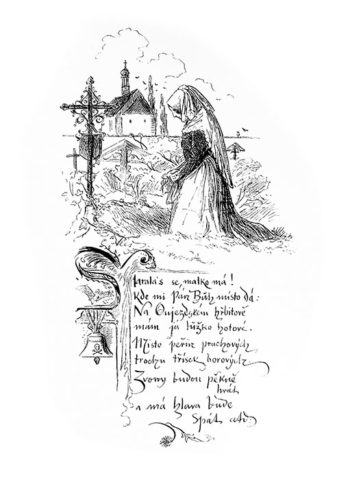 Starala's se, matko má!
Kde mi Pán Bůh místo dá:
Na Oujezdském hřbitově
mám já lůžko hotové.
Místo peřin prachových
trochu třísek borových
Zvony budou pěkně
hrát
a má hlava bude
spát atd.